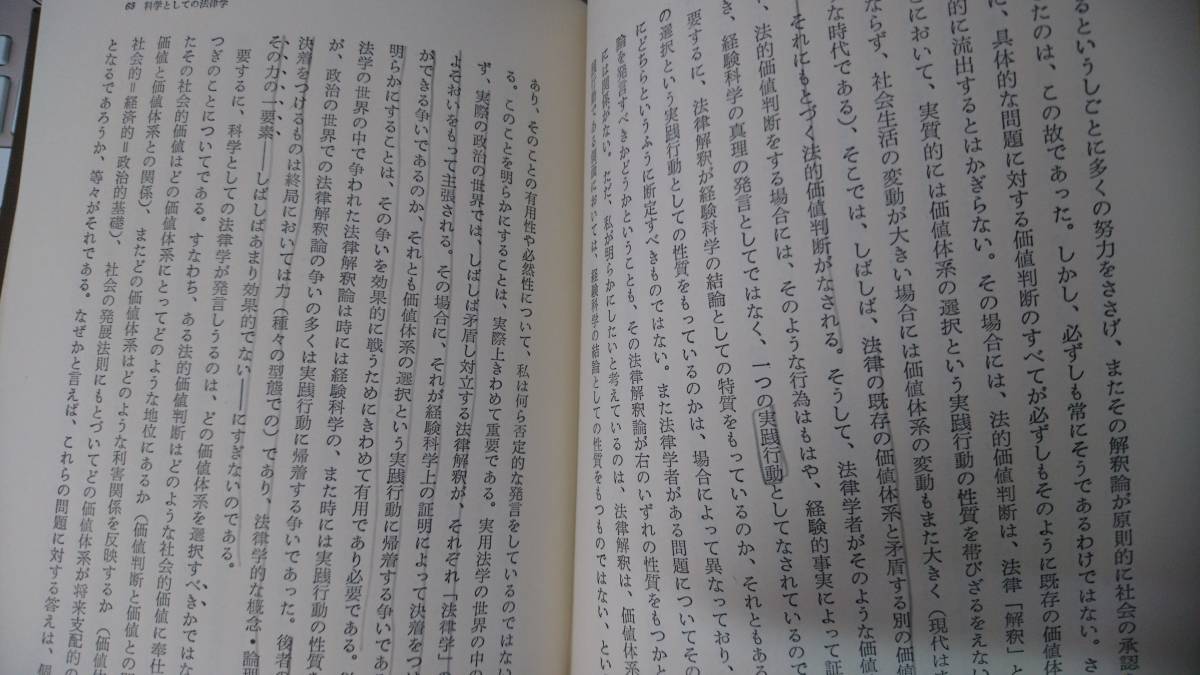 るというしごとに多くの努力をささげ、またその解釈論が原則的に社会の承認
きたのは、この故であった。しかし、必ずしも常にそうであるわけではない。さ
に、具体的な問題に対する価値判断のすべてが必ずしもそのように既存の価値体
的に流出するとはかぎらない。その場合には、法的価値判断は、法律「解釈」と
において、実質的には価値体系の選択という実践行動の性質を帯びざるをえない
ならず、社会生活の変動が大きい場合には価値体系の変動もまた大きく(現代は
な時代である)、そこでは、しばしば、法律の既存の価値体系と矛盾する別の価値
それにもとづく法的価値判断がなされる。そうして、法律学者がそのような価値
、法的価値判断をする場合には、そのような行為はもはや、経験的事実によって証
き、経験科学の真理の発言としてではなく、一つの実践行動としてなされているので
要するに、法律解釈が経験科学の結論としての特質をもっているのか、それともある
の選択という実践行動としての性質をもっているのかは、場合によって異なっており、
にどちらというふうに断定すべきものではない。また法律学者がある問題についてその
論を発言すべきかどうかということも、その法律解釈論が右のいずれの性質をもつかと
には関係がない。ただ、私が明らかにしたいと考えているのは、法律解釈は、価値体系
においては、経験科学の結論としての性質をもつものではない、とい
63 科学としての法律学
あり、そのことの有用性や必然性について、私は何ら否定的な発言をしているのではない
る。このことを明らかにすることは、実際上きわめて重要である。実用法学の世界の中
ず、実際の政治の世界では、しばしば矛盾し対立する法律解釈が、それぞれ「法律学」の
よそおいをもって主張される。その場合に、それが経験科学上の証明によって決着をつ
ができる争いであるのか、それとも価値体系の選択という実践行動に帰着する争いであ
明らかにすることは、その争いを効果的に戦うためにきわめて有用であり必要である。
法学の世界の中で争われた法律解釈論は時には経験科学の、また時には実践行動の性質
が、政治の世界での法律解釈論の争いの多くは実践行動に帰着する争いであった。後者の
決着をつけるものは終局においては力(種々の型態での)であり、法律学的な概念・論理
その力の一要素――しばしばあまり効果的でない――にすぎないのである。
要するに、科学としての法律学が発言しうるのは、どの価値体系を選択すべきかではな
つぎのことについてである。すなわち、ある法的価値判断はどのような社会的価値に奉仕
たその社会的価値はどの価値体系にとってどのような地位にあるか(価値判断と価値との関
価値と価値体系との関係)、またどの価値体系はどのような利害関係を反映するか(価値体
社会的=経済的=政治的基礎)、社会の発展法則にもとづいてどの価値体系が将来支配的の
となるであろうか、等々がそれである。なぜかと言えば、これらの問題に対する答えは、個